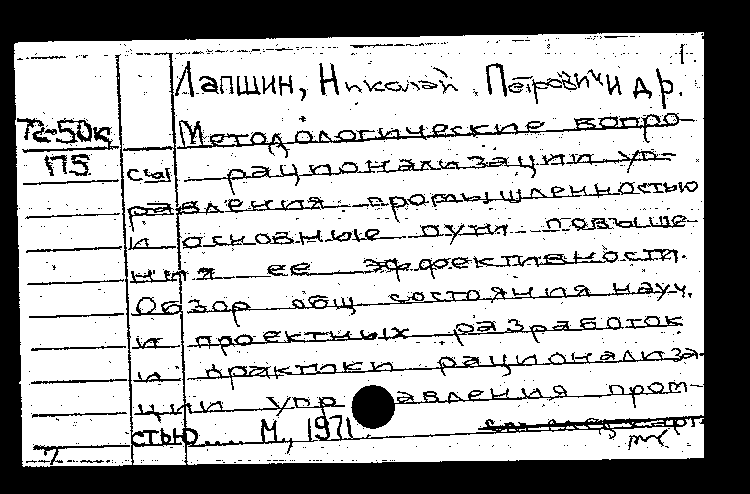 Лапшин, Николай Петрович и др.
72-50к Методологические вопро-
П5 сы рационализации уп-
равления промышленностью
и основные пути повыше-
ния ее эффективности.
Обзор общ состояния науч.
и проектных разработок
и практики рационализа-
ции управления пром-
стью.... М., 1971